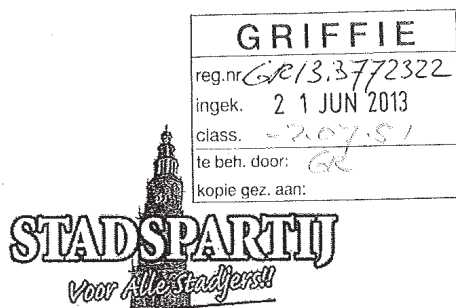 GRIFFIE
reg.nr GR13.3772322
ingek. 21 JUN 2013
class. -2.07.51
te beh. door: GR
kopie gez. aan:
STADSPARTIJ
Voor Alle Stadjers!!